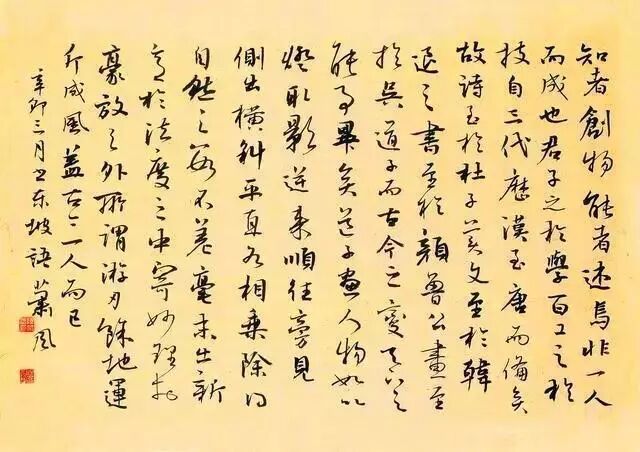 知者創物能者述焉非一人
而成也君子之於學百工之於
技自三代歷漢至唐而備矣
故詩至於杜子美文至於韓
退之書至於顏魯公畫至
於吳道子而古今之變天下之
能事畢矣道子畫人物如以
燈取影逆來順往旁見
側出橫斜平直各相乘除得
自然之數不差毫末出新
意於法度之中寄妙理於
豪放之外所謂游刃餘地運
斤成風蓋古今一人而已
辛卯三月书东坡語蕭风